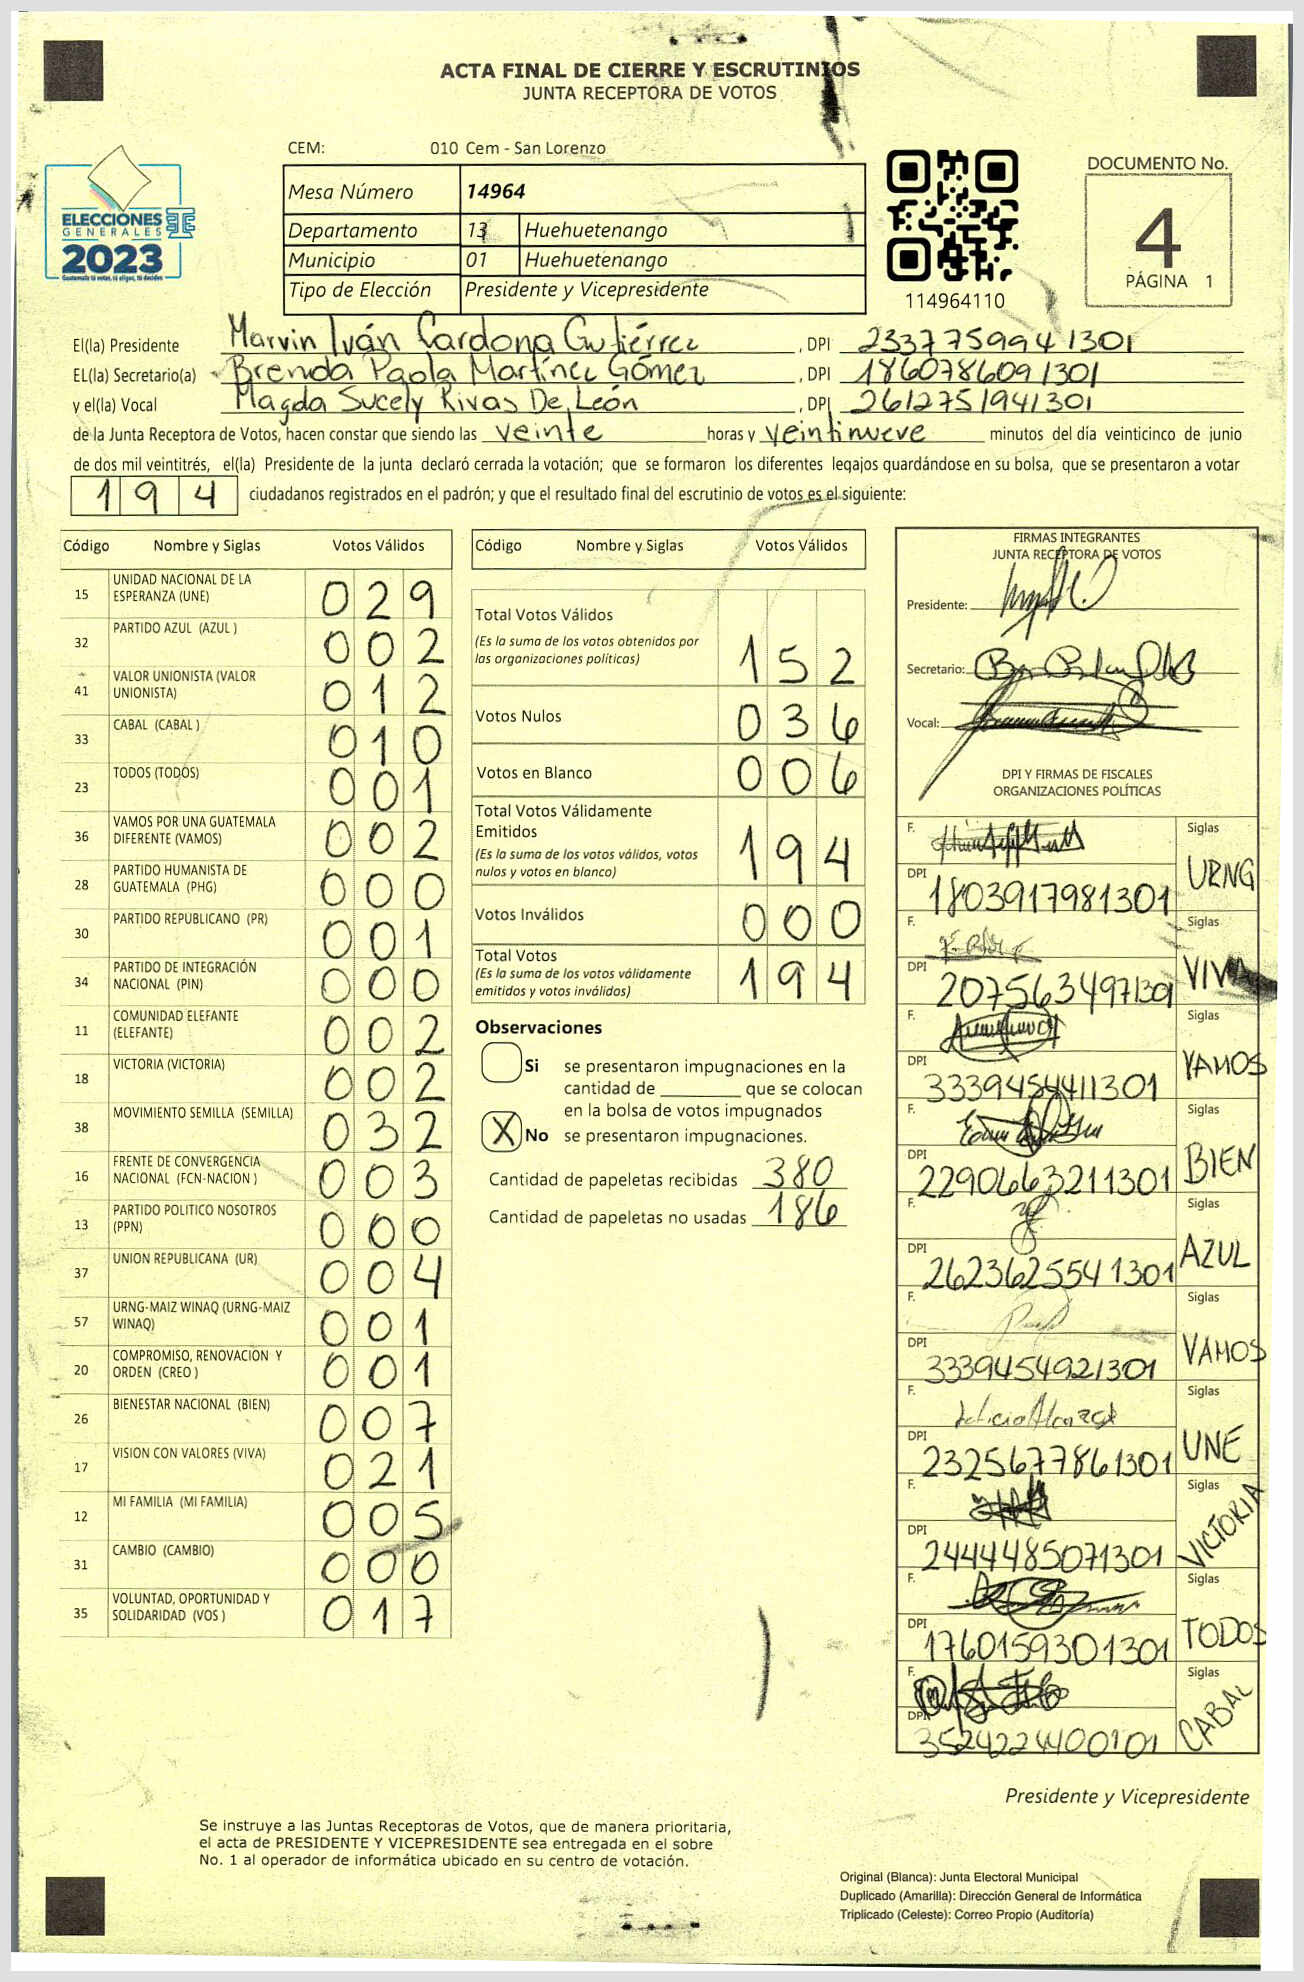 ACTA FINAL DE CIERRE Y ESCRUTINIOS
JUNTA RECEPTORA DE VOTOS
CEM: 010 Cem - San Lorenzo
ELECCIONES
GENERALES
2023
Guatemala tú votas, tú eliges, tú decides
Mesa Número 14964
Departamento 13 Huehuetenango
Municipio 01 Huehuetenango
Tipo de Elección Presidente y Vicepresidente
114964110
DOCUMENTO No.
4
PÁGINA 1
El(la) Presidente Marvin Iván Cardona Gutiérrez , DPI 2337759941301
EL(la) Secretario(a) Brenda Paola Martínez Gómez , DPI 1860786091301
y el(la) Vocal Magda Sucely Rivas De León , DPI 2612751941301
de la Junta Receptora de Votos, hacen constar que siendo las veinte horas y veintinueve minutos del día veinticinco de junio
de dos mil veintitrés, el(la) Presidente de la junta declaró cerrada la votación; que se formaron los diferentes legajos guardándose en su bolsa, que se presentaron a votar
194 ciudadanos registrados en el padrón; y que el resultado final del escrutinio de votos es el siguiente:
Código Nombre y Siglas Votos Válidos
15 UNIDAD NACIONAL DE LA ESPERANZA (UNE) 029
32 PARTIDO AZUL (AZUL ) 002
41 VALOR UNIONISTA (VALOR UNIONISTA) 012
33 CABAL (CABAL ) 010
23 TODOS (TODOS) 001
36 VAMOS POR UNA GUATEMALA DIFERENTE (VAMOS) 002
28 PARTIDO HUMANISTA DE GUATEMALA (PHG) 000
30 PARTIDO REPUBLICANO (PR) 001
34 PARTIDO DE INTEGRACIÓN NACIONAL (PIN) 000
11 COMUNIDAD ELEFANTE (ELEFANTE) 002
18 VICTORIA (VICTORIA) 002
38 MOVIMIENTO SEMILLA (SEMILLA) 032
16 FRENTE DE CONVERGENCIA NACIONAL (FCN-NACION ) 003
13 PARTIDO POLITICO NOSOTROS (PPN) 000
37 UNION REPUBLICANA (UR) 004
57 URNG-MAIZ WINAQ (URNG-MAIZ WINAQ) 001
20 COMPROMISO, RENOVACION Y ORDEN (CREO ) 001
26 BIENESTAR NACIONAL (BIEN) 007
17 VISION CON VALORES (VIVA) 021
12 MI FAMILIA (MI FAMILIA) 005
31 CAMBIO (CAMBIO) 000
35 VOLUNTAD, OPORTUNIDAD Y SOLIDARIDAD (VOS ) 017
Código Nombre y Siglas Votos Válidos
Total Votos Válidos
(Es la suma de los votos obtenidos por
las organizaciones políticas) 152
Votos Nulos 036
Votos en Blanco 006
Total Votos Válidamente
Emitidos
(Es la suma de los votos válidos, votos
nulos y votos en blanco) 194
Votos Inválidos 000
Total Votos
(Es la suma de los votos válidamente
emitidos y votos inválidos) 194
Observaciones
Si se presentaron impugnaciones en la
cantidad de ________ que se colocan
en la bolsa de votos impugnados
X No se presentaron impugnaciones.
Cantidad de papeletas recibidas 380
Cantidad de papeletas no usadas 186
FIRMAS INTEGRANTES
JUNTA RECEPTORA DE VOTOS
Presidente:
Secretario:
Vocal:
DPI Y FIRMAS DE FISCALES
ORGANIZACIONES POLÍTICAS
F. Siglas
DPI 1803917981301 URNG
F. Siglas
DPI 2075634971301 VIVA
F. Siglas
DPI 3339454411301 VAMOS
F. Siglas
DPI 2290663211301 BIEN
F. Siglas
DPI 2623625541301 AZUL
F. Siglas
DPI 3339454921301 VAMOS
F. Siglas
DPI 2325677861301 UNE
F. Siglas
DPI 2444485071301 VICTORIA
F. Siglas
DPI 1760159301301 TODOS
F. Siglas
DPI 3524224400101 CABAL
Presidente y Vicepresidente
Se instruye a las Juntas Receptoras de Votos, que de manera prioritaria,
el acta de PRESIDENTE Y VICEPRESIDENTE sea entregada en el sobre
No. 1 al operador de informática ubicado en su centro de votación.
Original (Blanca): Junta Electoral Municipal
Duplicado (Amarilla): Dirección General de Informática
Triplicado (Celeste): Correo Propio (Auditoría)